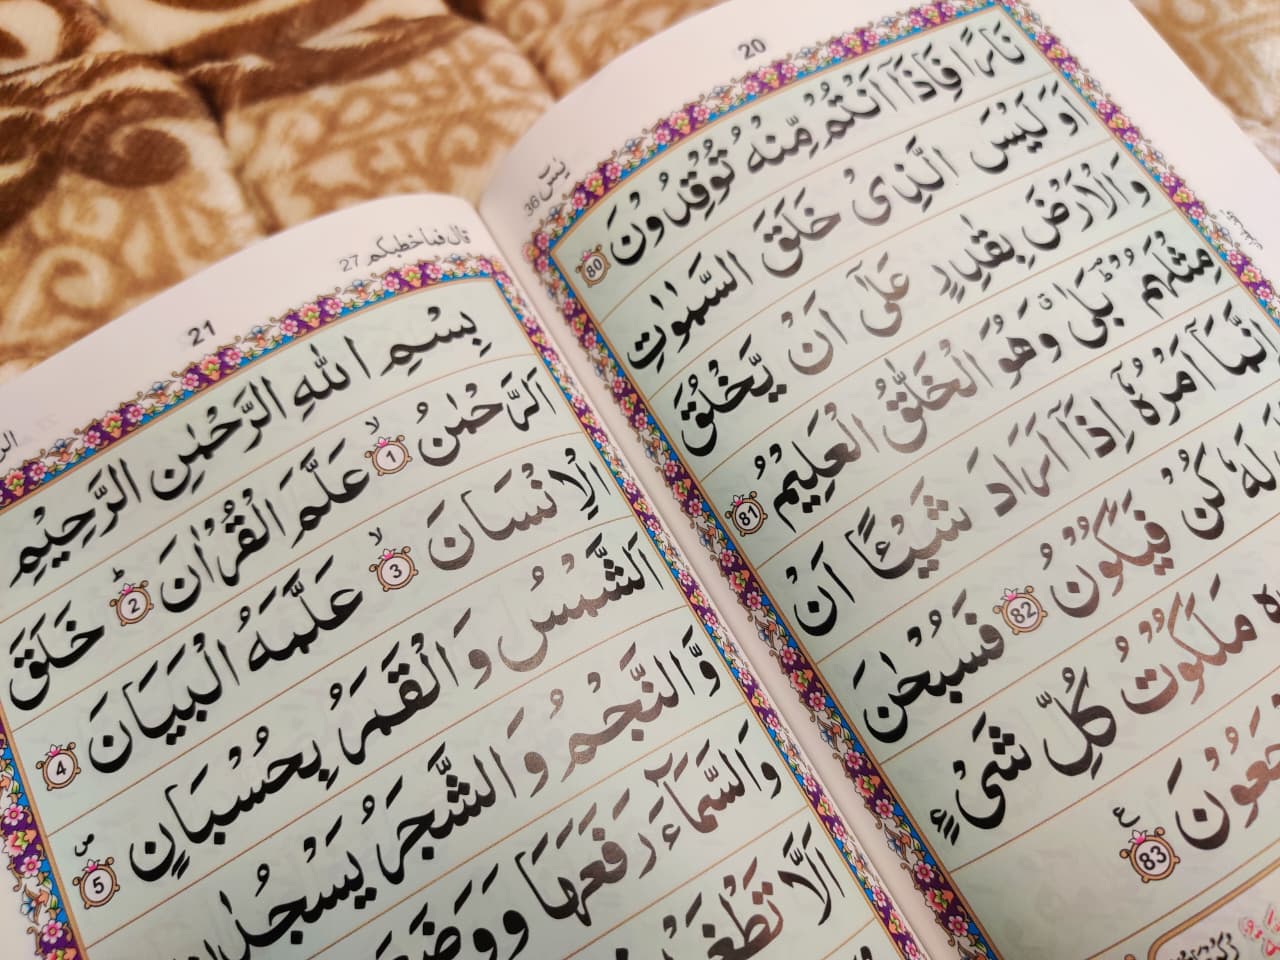 20
يٰسٓ 36
نَارًا فَاِذَآ اَنْتُمْ مِّنْهُ تُوْقِدُوْنَ 80
اَوَ لَيْسَ الَّذِىْ خَلَقَ السَّمٰوٰتِ
وَالْاَرْضَ بِقٰدِرٍ عَلٰٓى اَنْ يَّخْلُقَ
مِثْلَهُمْ ؕ بَلٰى ۗ وَهُوَ الْخَلّٰقُ الْعَلِيْمُ 81
اِنَّمَاۤ اَمْرُهٗۤ اِذَاۤ اَرَادَ شَيْـًٔا اَنْ
لَهٗ كُنْ فَيَكُوْنُ 82 فَسُبْحٰنَ
مَلَكُوْتُ كُلِّ شَىْءٍ
83 ع
21
قال فما خطبكم 27
بِسْمِ اللهِ الرَّحْمٰنِ الرَّحِيْمِ
اَلرَّحْمٰنُ ۙ 1 عَلَّمَ الْقُرْاٰنَ ؕ 2 خَلَقَ
الْاِنْسَانَ ۙ 3 عَلَّمَهُ الْبَيَانَ 4
اَلشَّمْسُ وَالْقَمَرُ بِحُسْبَانٍ ۪ 5
وَّالنَّجْمُ وَالشَّجَرُ
وَالسَّمَآءَ رَفَعَهَا
اَلَّا